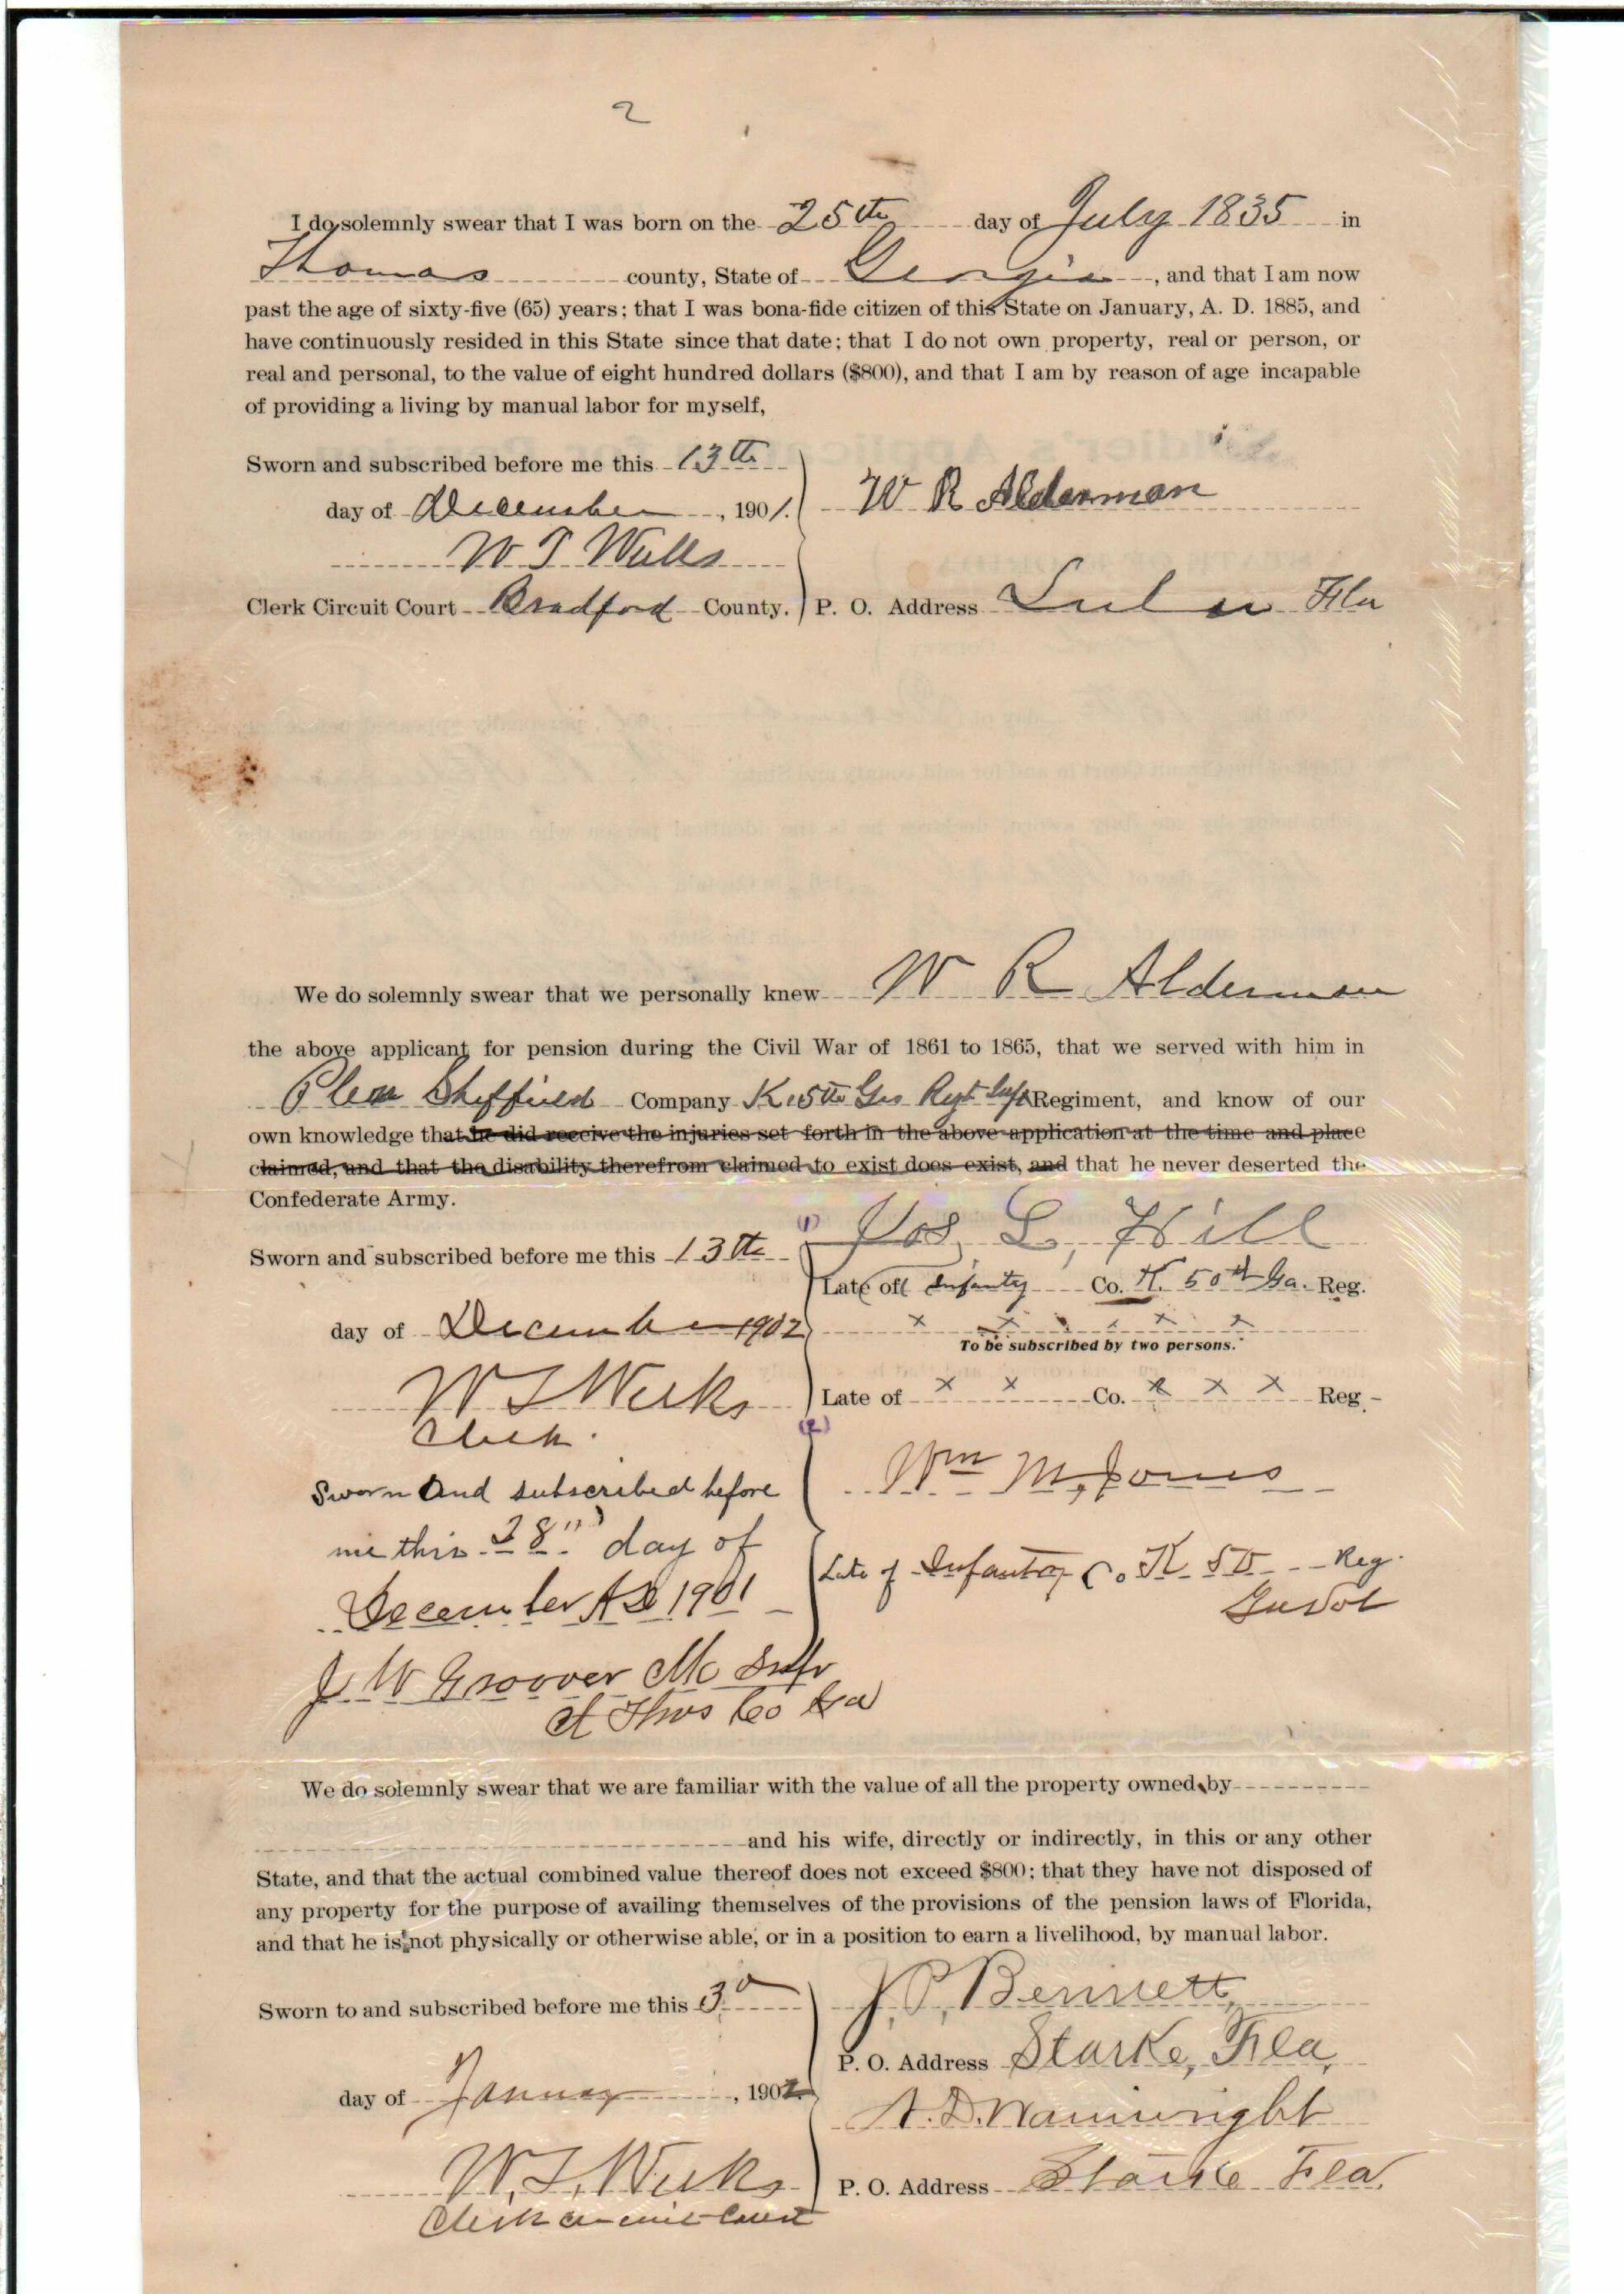 2
I do solemnly swear that I was born on the 25th day of July 1835 in
Thomas county, State of Georgia, and that I am now
past the age of sixty-five (65) years; that I was bona-fide citizen of this State on January, A. D. 1885, and
have continuously resided in this State since that date; that I do not own property, real or person, or
real and personal, to the value of eight hundred dollars ($800), and that I am by reason of age incapable
of providing a living by manual labor for myself,
Sworn and subscribed before me this 13th
day of December, 1901. W R Alderman
W T Weeks
Clerk Circuit Court Bradford County. P. O. Address Lulu Fla
We do solemnly swear that we personally knew W R Alderman
the above applicant for pension during the Civil War of 1861 to 1865, that we served with him in
Sheffield Company K Ga Regt Inft Regiment, and know of our
own knowledge that he did receive the injuries set forth in the above application at the time and place
claimed, and that the disability therefrom claimed to exist does exist, and that he never deserted the
Confederate Army.
(1) Jos, L, Hill
Sworn and subscribed before me this 13th
Late of Infanty Co. K. 50th Ga. Reg.
day of December 1902 x x x x x x
To be subscribed by two persons.
W T Weeks Late of x x Co. x x x Reg
Clerk. (2)
Wm M, Jones
Sworn and subscribed before
me this 28" day of
Late of Infantry Co. K 50 Reg.
December AD 1901 Ga Vol
J. W Groover Clk Supr
Ct Thos Co Ga
We do solemnly swear that we are familiar with the value of all the property owned by
and his wife, directly or indirectly, in this or any other
State, and that the actual combined value thereof does not exceed $800; that they have not disposed of
any property for the purpose of availing themselves of the provisions of the pension laws of Florida,
and that he is not physically or otherwise able, or in a position to earn a livelihood, by manual labor.
Sworn to and subscribed before me this 3d J. P. Bennett,
P. O. Address Starke, Fla,
day of January, 1902
A. D. Wainwright
W. T. Weeks P. O. Address Starke Fla.
Clerk Circuit Court